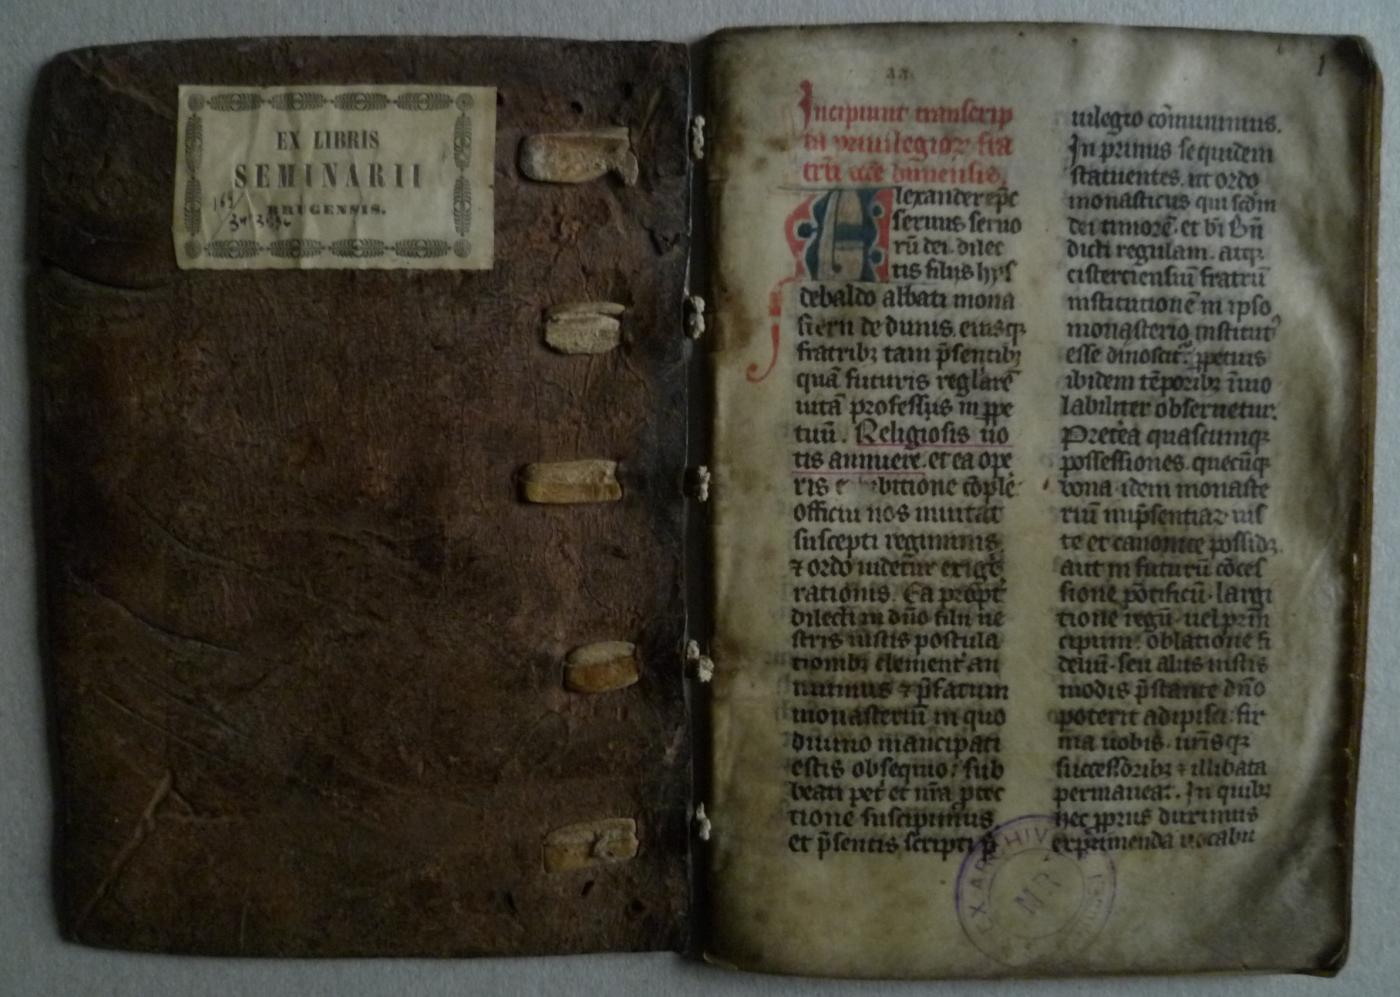 EX LIBRIS
SEMINARII
BRUGENSIS.
1
Incipiunt transcrip
ta priuilegioꝝ fra
trū ecc̄e dunensis.
Alexander ep̄c
seruus seruo
rū dei. dilec
tis filiis
debaldo abbati mona
sterii de dunis. eiusqꝫ
fratribꝫ tam p̄sentibꝫ
quā futuris reglārē
uitā professis in ꝑpe
tuū. Religiosis uo
tis annuere. et ea ope
ris bitione cōplē
officiū nos inuitat
suscepti regiminis.
⁊ ordo uidetur exigē
rationis. Ea propt̄
dilecti in dn̄o filii ue
stris iustis postula
tionibꝫ clement̄ an
nuimus ⁊ p̄fatum
monasteriū in quo
diuino mancipati
estis obsequio. sub
beati pet̄ et nr̄a ꝓtec
tione suscipimus.
et p̄sentis scripti p̄
uilegio cōmunimus.
In primis sequidem
statuentes. ut ordo
monasticus qui scd̄m
dei timorē. et bī bn̄
dicti regulam. atqꝫ
cisterciensiū fratrū
institutionē in ipso
monasterio institut᷒
esse dinoscit᷒. ꝑpetuis
ibidem tēporibꝫ īuio
labiliter obseruetur.
Preterea quascumqꝫ
possessiones. quecūqꝫ
bona idem monaste
riū inp̄sentiaꝝ ius
te et canonice possidꝫ.
aut in futurū cōces
sione pōtificū. largi
tione regū. uel prin
cipum. oblatione fi
deliū. seu aliis iustis
modis p̄stante dn̄o
poterit adipisci. fir
ma uobis. urīsqꝫ
successoribꝫ ⁊ illibata
permaneat. In quibꝫ
hec ꝓpriis duximus
exprimenda uocabu